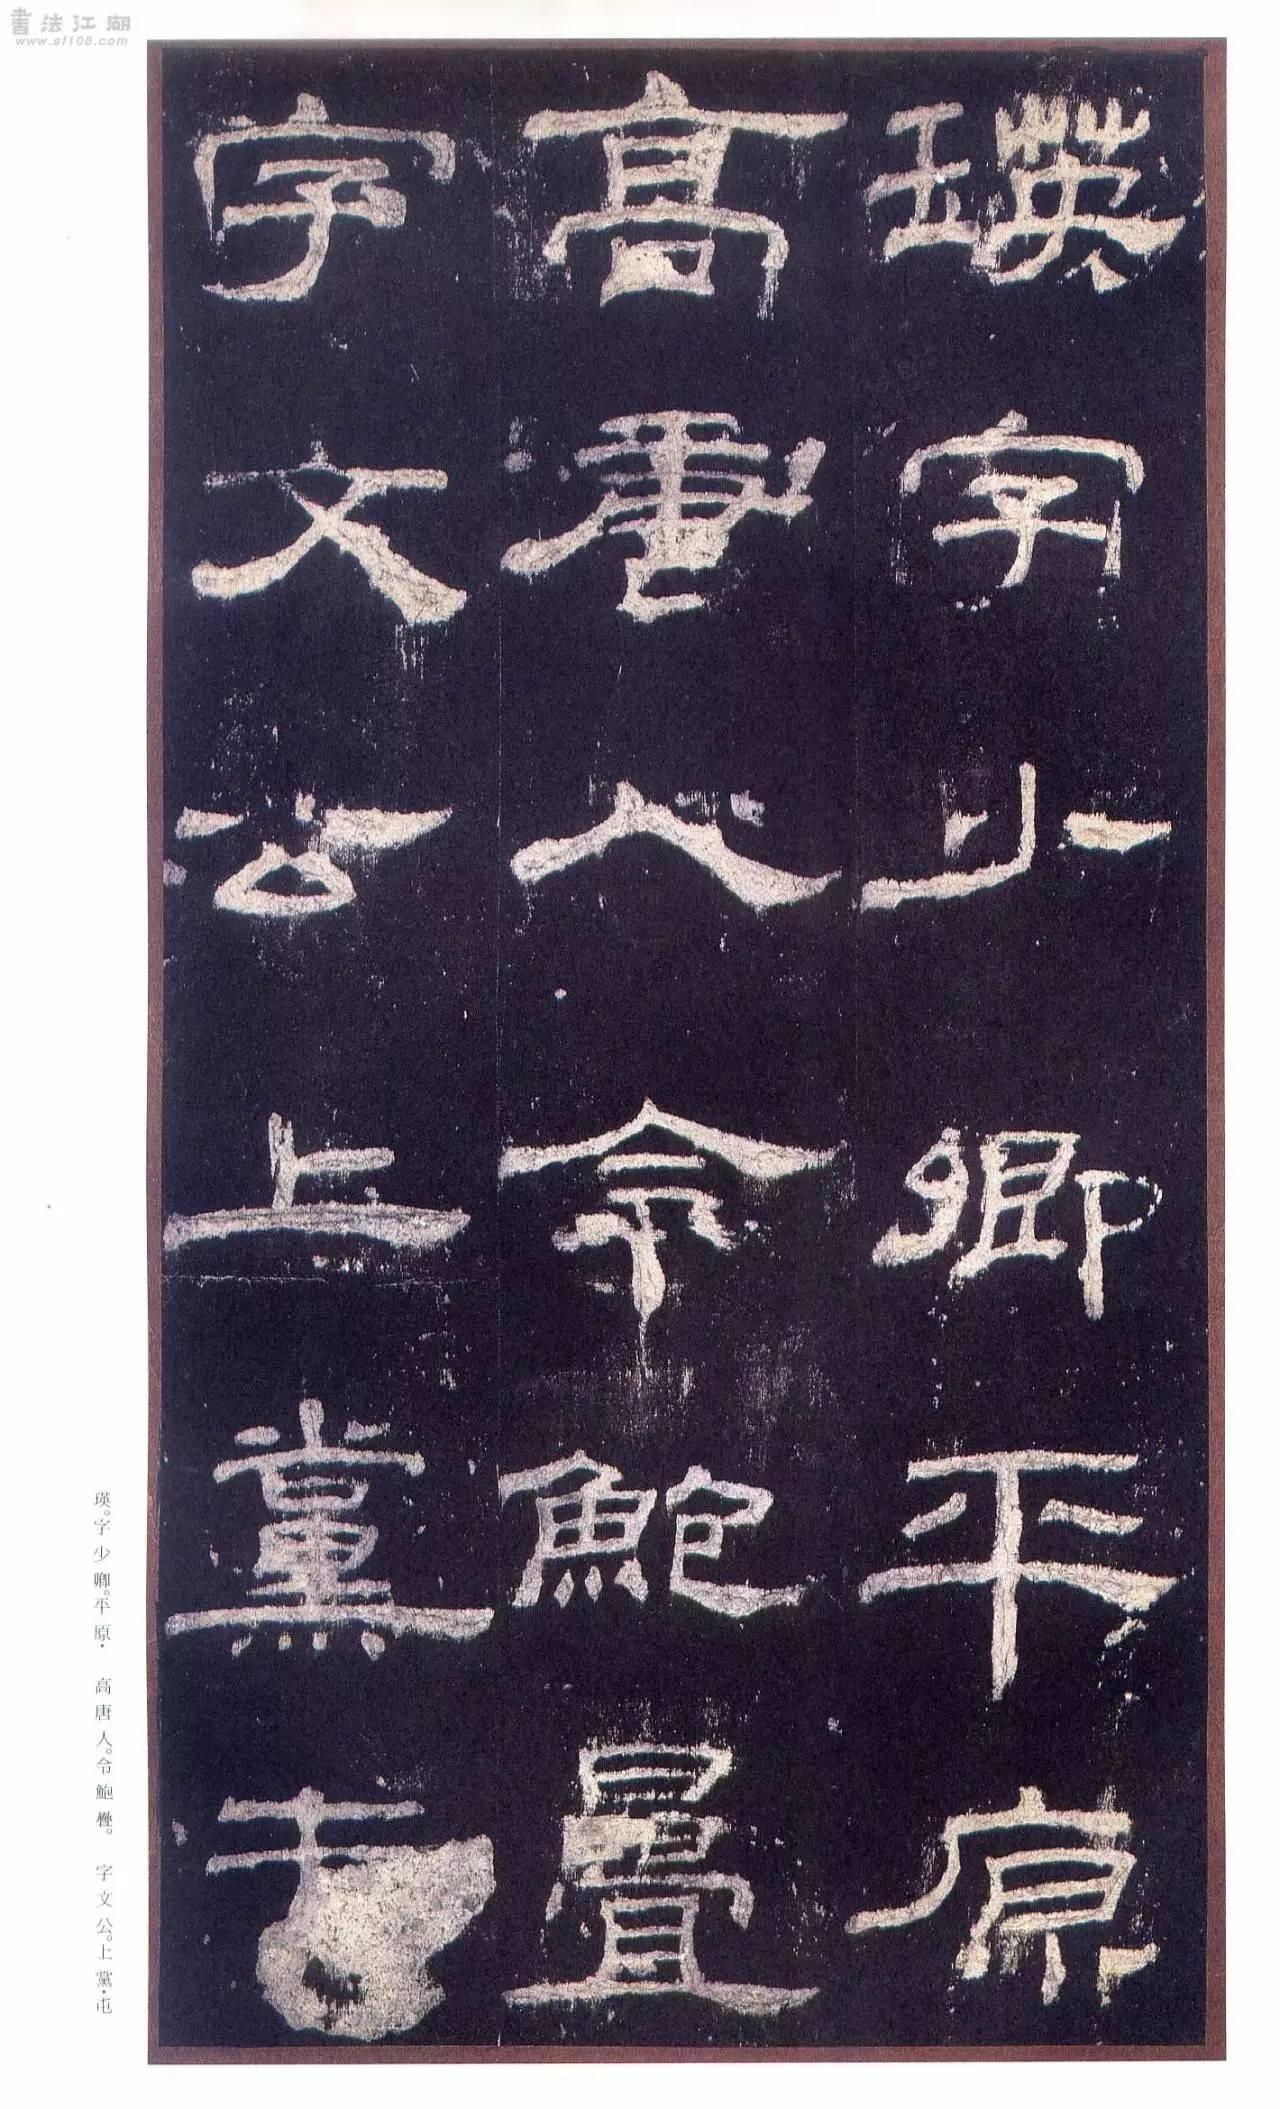 書法江湖
www.sf108.com
瑛字少卿平原
高唐人令鮑疊
字文公上黨屯
瑛。字少卿。平原·
高唐人。令鮑疊。
字文公。上黨·屯